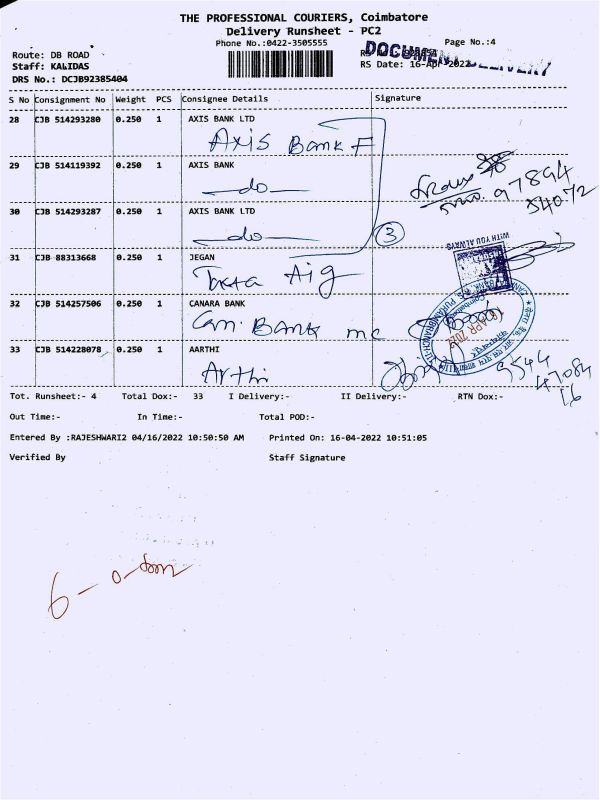 THE PROFESSIONAL COURIERS, Coimbatore
Delivery Runsheet - PC2
Phone No.:0422-3505555
Page No.:4
Route: DB ROAD
DOCUMENT DELIVERY
Staff: KALIDAS
RS Date: 16-Apr-2022
DRS No.: DCJB92385404
S No Consignment No Weight PCS Consignee Details Signature
28 CJB 514293280 0.250 1 AXIS BANK LTD
Axis Bank F
29 CJB 514119392 0.250 1 AXIS BANK
do
97894
54072
30 CJB 514293287 0.250 1 AXIS BANK LTD
do
3
WITH YOU ALWAYS
31 CJB 88313668 0.250 1 JEGAN
Tata Aig
32 CJB 514257506 0.250 1 CANARA BANK
Can. Bank mc
APR 2022
33 CJB 514228078 0.250 1 AARTHI
Arthi
9544
47084
16
Tot. Runsheet:- 4 Total Dox:- 33 I Delivery:- II Delivery:- RTN Dox:-
Out Time:- In Time:- Total POD:-
Entered By :RAJESHWARI2 04/16/2022 10:50:50 AM Printed On: 16-04-2022 10:51:05
Verified By Staff Signature
6 - 0 -